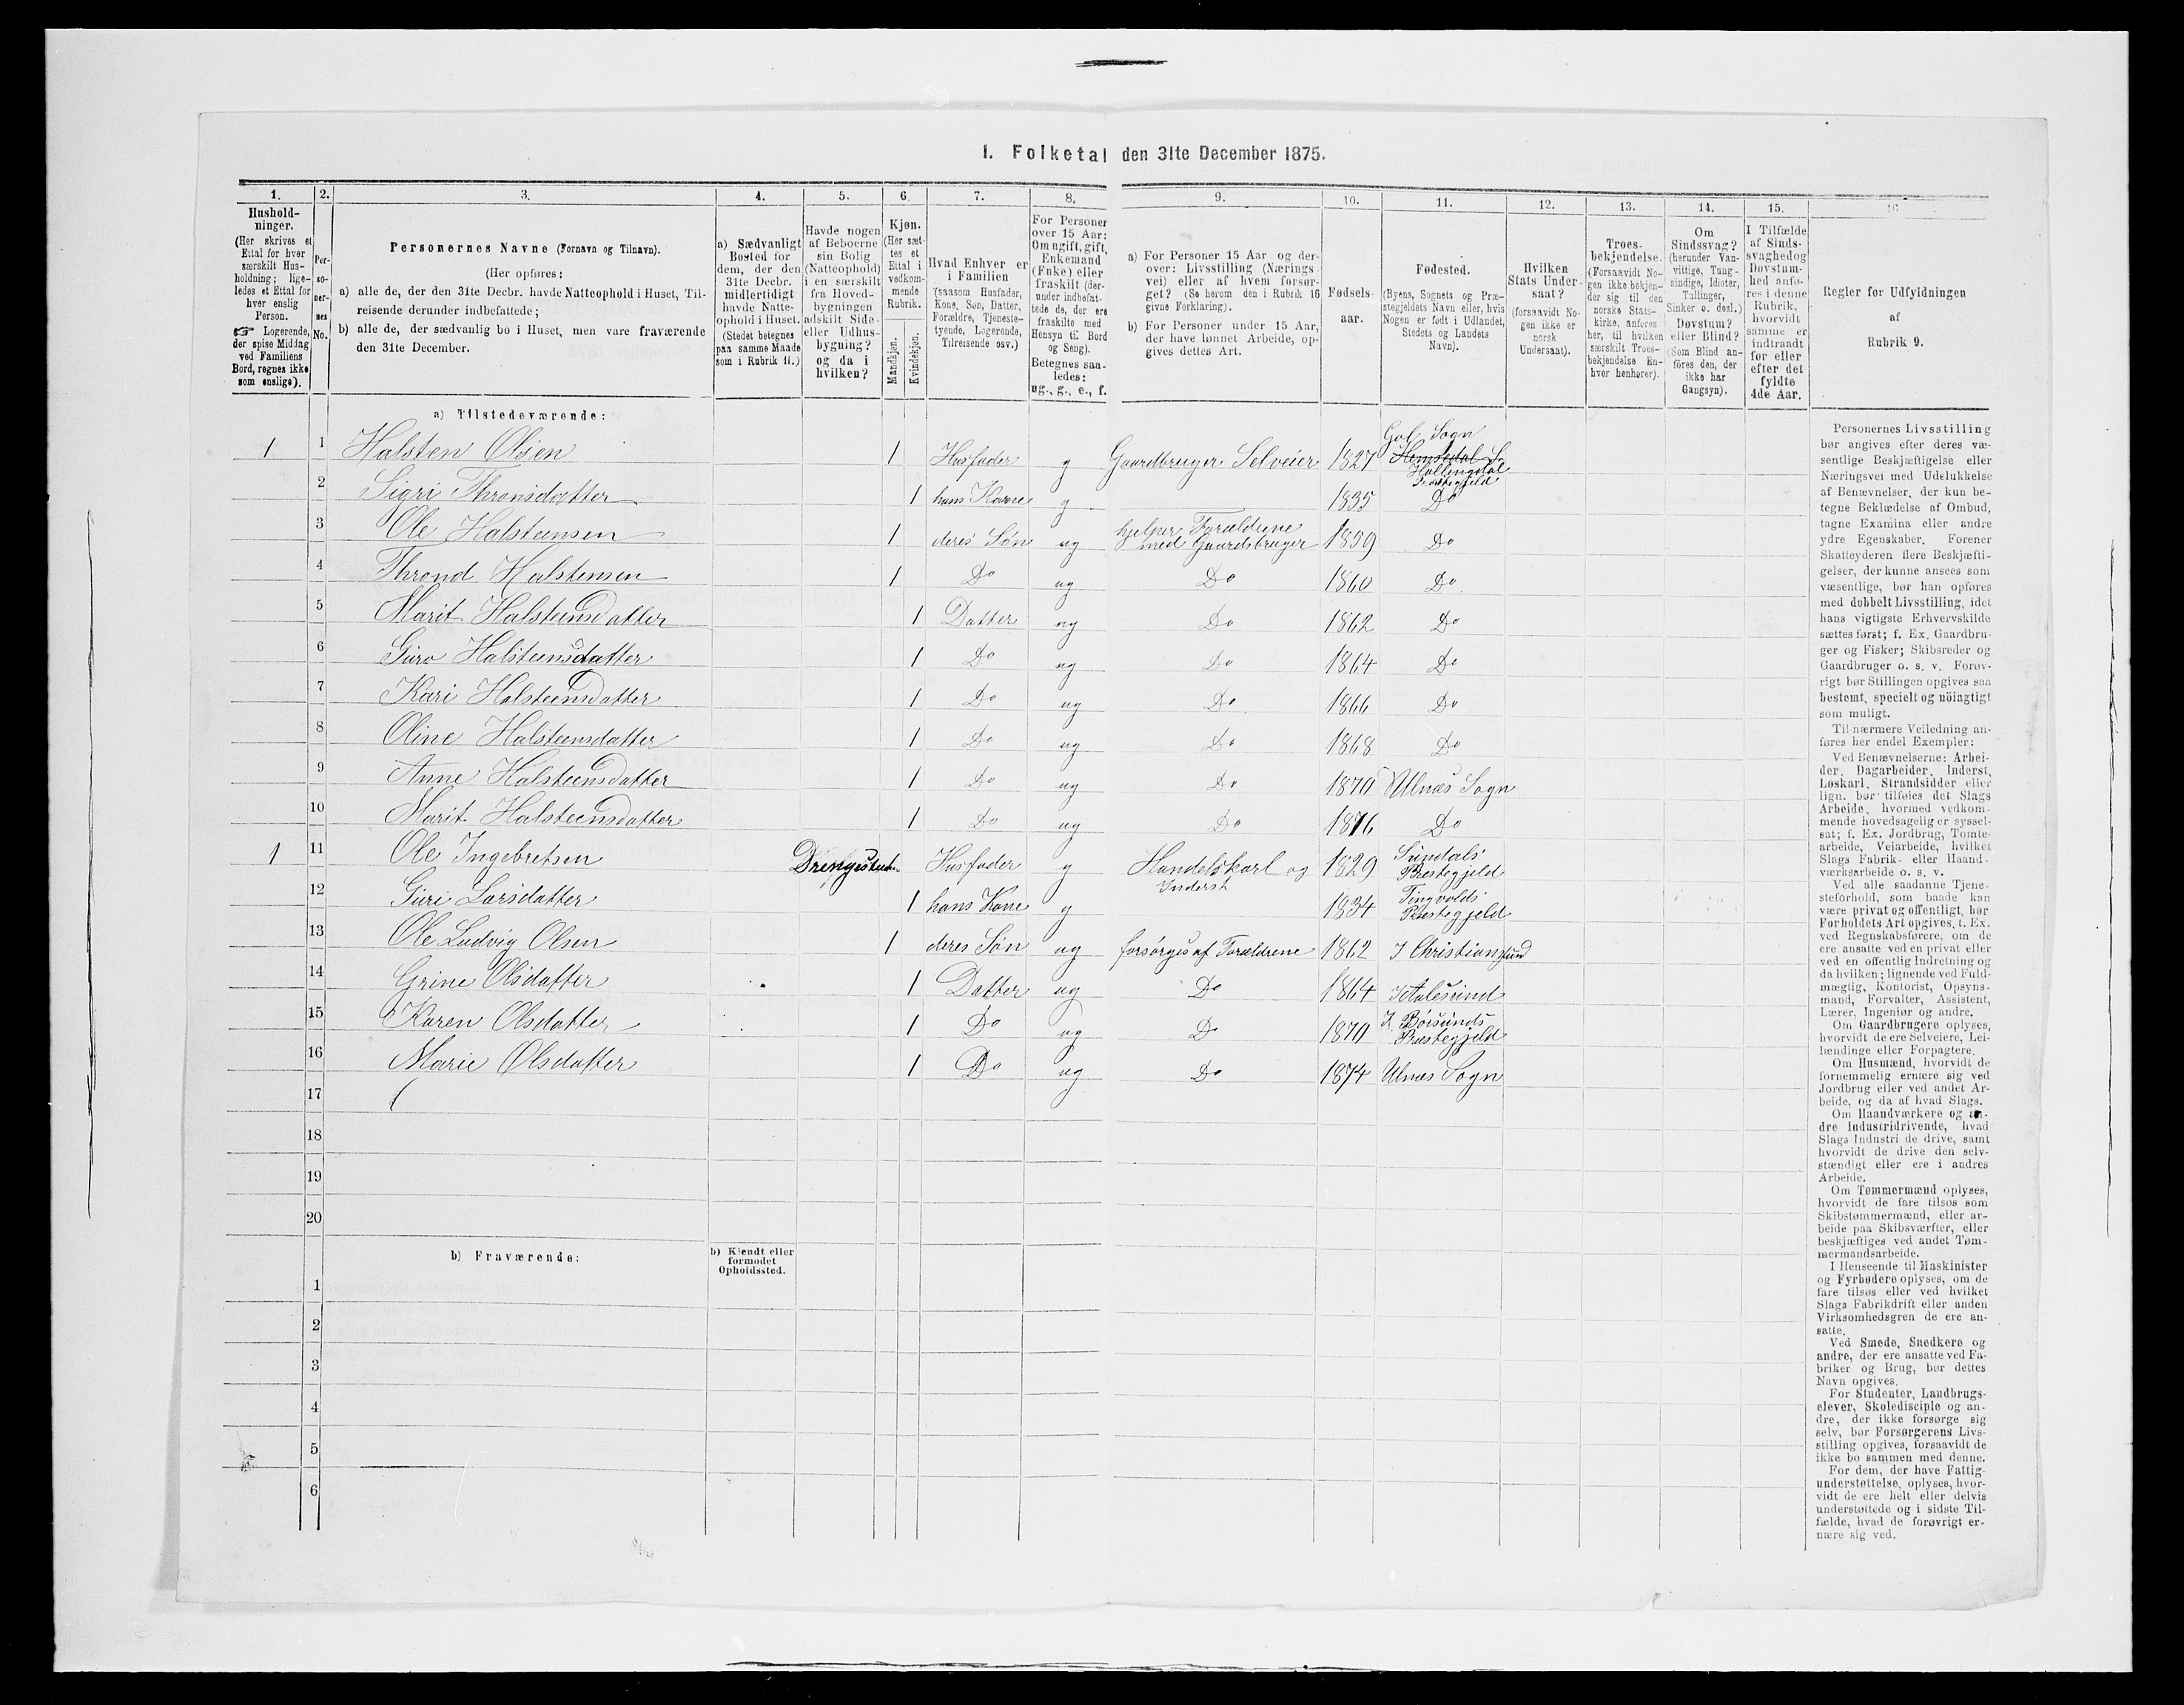 I. Folketal den 31te December 1875.
1. 2. 3. 4. 5. 6. 7. 8. 9. 10. 11. 12. 13. 14. 15. 16
Hushold-
ninger.
(Her skrives et
Ettal for hver
særskilt Hus-
holdning; lige-
ledes et Ettal for
hver enslig
Person.
☞ Logerende,
der spise Middag
ved Familiens
Bord, regnes ikke
som enslige).
Per-
so-
ner-
nes
No.
Personernes Navne (Fornavn og Tilnavn).
(Her opføres:
a) alle de, der den 31te Decbr. havde Natteophold i Huset, Til-
reisende derunder indbefattede;
b) alle de, der sædvanlig bo i Huset, men vare fraværende
den 31te December.
a) Sædvanligt
Bosted for
dem, der den
31te Decbr.
midlertidigt
havde Natte-
ophold i Huset.
(Stedet betegnes
paa samme Maade
som i Rubrik 11.)
Havde nogen
af Beboerne
sin Bolig
(Natteophold)
i en særskilt
fra Hoved-
bygningen
adskilt Side-
eller Udhus-
bygning?
og da i
hvilken?
Kjøn.
(Her sæt-
tes et
Ettal i
vedkom-
mende
Rubrik.
Mandkjøn.
Kvindekjøn.
Hvad Enhver er
i Familien
(saasom Husfader,
Kone, Søn, Datter,
Forældre, Tjeneste-
tyende, Logerende,
Tilreisende osv.)
For Personer
over 15 Aar:
Om ugift, gift,
Enkemand
(Enke) eller
fraskilt (der-
under indbefat-
tede de, der ere
fraskilte med
Hensyn til Bord
og Seng).
Betegnes saa-
ledes:
ug., g., e., f.
a) For Personer 15 Aar og der-
over: Livsstilling (Nærings-
vei) eller af hvem forsør-
get? (Se herom den i Rubrik 16
givne Forklaring).
b) For Personer under 15 Aar,
der have lønnet Arbeide, op-
gives dettes Art.
Fødsels-
aar.
Fødested.
(Byens, Sognets og Præ-
stegjeldets Navn eller, hvis
Nogen er født i Udlandet,
Stedets og Landets
Navn).
Hvilken
Stats Under-
saat?
(forsaavidt No-
gen ikke er
norsk
Undersaat).
Troes-
bekjendelse.
(Forsaavidt No-
gen ikke bekjen-
der sig til den
norske Stats-
kirke, anføres
her, til hvilken
særskilt Troes-
bekjendelse En-
hver henhører).
Om
Sindssvag?
(herunder Van-
vittige, Tung-
sindige, Idioter,
Tullinger,
Sinker o. desl.)
Døvstum?
eller Blind?
(Som Blind an-
føres den, der
ikke har
Gangsyn).
I Tilfælde
af Sinds-
svaghed og
Døvstum-
hed anfø-
res i denne
Rubrik,
hvorvidt
samme er
indtraadt
før eller
efter det
fyldte
4de Aar.
Regler for Udfyldningen
af
Rubrik 9.
a) Tilstedeværende:
1 1 Halsten Olsen 1 Husfader g Gaardbruger Selveier 1827 Gol Sogn Hemsedal S. Hallingdal Præstegjeld
2 Sigri Thronsdatter 1 hans Kone g 1835 Do
3 Ole Halsteensen 1 deres Søn ug hjelper Forældrene med Gaardsbruger 1859 Do
4 Thrond Halstensen 1 Do ug Do 1860 Do
5 Marit Halsteensdatter 1 Datter ug Do 1862 Do
6 Guro Halsteensdatter 1 Do ug Do 1864 Do
7 Kari Halsteensdatter 1 Do ug Do 1866 Do
8 Oline Halsteensdatter 1 Do ug Do 1868 Do
9 Anne Halsteensdatter 1 Do ug Do 1870 Ulnæs Sogn
10 Marit Halsteensdatter 1 Do ug Do Do
1 11 Ole Ingebretsen Husfader g Handelskarl og Inderst 1829 Sundals Præstegjeld
12 Guri Larsdatter 1 hans Kone g 1834 Tingvolds Præstegjeld
13 Ole Ludvig Olsen 1 deres Søn ug forsørges af Forældrene 1862 I Christiansund
14 Grine Olsdatter 1 Datter ug Do 1864 I Aalesund
15 Karen Olsdatter 1 Do ug Do 1870 Præstegjeld
16 Marie Olsdatter 1 Do ug Do 1874 Ulnæs Sogn
17
18
19
20
b) Fraværende:
b) Kjendt eller
formodet
Opholdssted.
1
2
3
4
5
6
Personernes Livsstilling
bør angives efter deres væ-
sentlige Beskjæftigelse eller
Næringsvei med Udelukkelse
af Benævnelser, der kun be-
tegne Beklædelse af Ombud,
tagne Examina eller andre
ydre Egenskaber. Forener
Skatteyderen flere Beskjæfti-
gelser, der kunne ansees som
væsentlige, bør han opføres
med dobbelt Livsstilling, idet
hans vigtigste Erhvervskilde
sættes først; f. Ex. Gaardbru-
ger og Fisker; Skibsreder og
Gaardbruger o. s. v. Forøv-
rigt bør Stillingen opgives saa
bestemt, specielt og nöiagtigt
som muligt.
Til nærmere Veiledning an-
føres her endel Exempler:
Ved Benævnelserne: Arbei-
der, Dagarbeider, Inderst,
Løskarl, Strandsidder eller
lign. bør tilføies det Slags
Arbeide, hvormed vedkom-
mende hovedsagelig er syssel-
sat; f. Ex. Jordbrug, Tomte-
arbeide, Veiarbeide, hvilket
Slags Fabrik- eller Haand-
værksarbeide o. s. v.
Ved alle saadanne Tjene-
steforhold, som baade kan
være privat og offentligt, bør
Forholdets Art opgives, t. Ex.
ved Regnskabsførere, om de
ere ansatte ved en privat eller
ved en offentlig Indretning og
da hvilken; lignende ved Fuld-
mægtig, Kontorist, Opsyns-
mand, Forvalter, Assistent,
Lærer, Ingeniør og andre.
Om Gaardbrugere oplyses,
hvorvidt de ere Selveiere, Lei-
lændinge eller Forpagtere.
Om Husmænd, hvorvidt de
fornemmelig ernære sig ved
Jordbrug eller ved andet Ar-
beide, og da af hvad Slags.
Om Haandværkere og an-
dre Industridrivende, hvad
Slags Industri de drive, samt
hvorvidt de drive den selv-
stændigt eller ere i andres
Arbeide.
Om Tømmermænd oplyses,
hvorvidt de fare tilsøs som
Skibstømmermænd, eller ar-
beide paa Skibsværfter, eller
beskjæftiges ved andet Tøm-
mermandsarbeide.
I Henseende til Maskinister
og Fyrbødere oplyses, om de
fare tilsøs eller ved hvilket
Slags Fabrikdrift eller anden
Virksomhedsgren de ere an-
satte.
Ved Smede, Snedkere og
andre, der ere ansatte ved Fa-
briker og Brug, bør dettes
Navn opgives.
For Studenter, Landbrugs-
elever, Skoledisciple og an-
dre, der ikke forsørge sig
selv, bør Forsørgerens Livs-
stilling opgives, forsaavidt de
ikke bo sammen med denne.
For dem, der have Fattig-
understøttelse, oplyses, hvor-
vidt de ere helt eller delvis
understøttede og i sidste Til-
fælde, hvad de forøvrigt er-
nære sig ved.